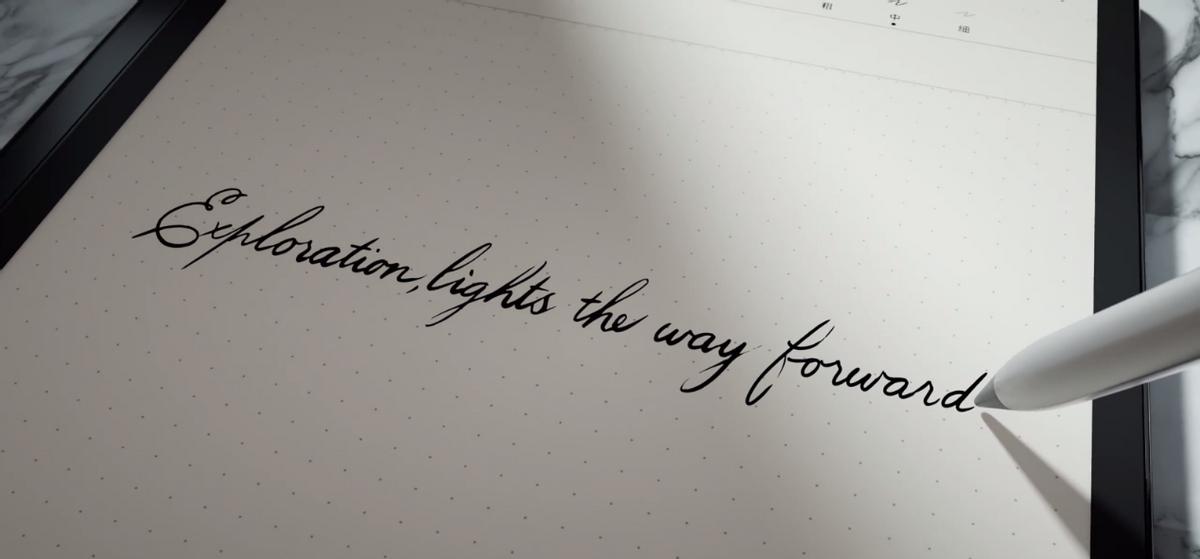 粗 中 細
Exploration, lights the way forward